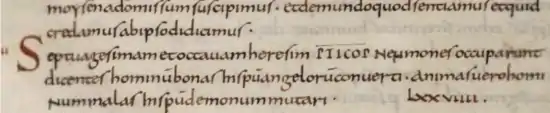 moysen adomissum suscipimus · et de mundo quod sentiamus et quid
credamus ab ipso didicimus ·
Septuagesimam et octavam heresim PTICOP Neumones occuparunt
dicentes hominū bonas in spm̄ angelorū converti · animas vero homi
num malas in spm̄ demonum mutari · lxxviiii ·